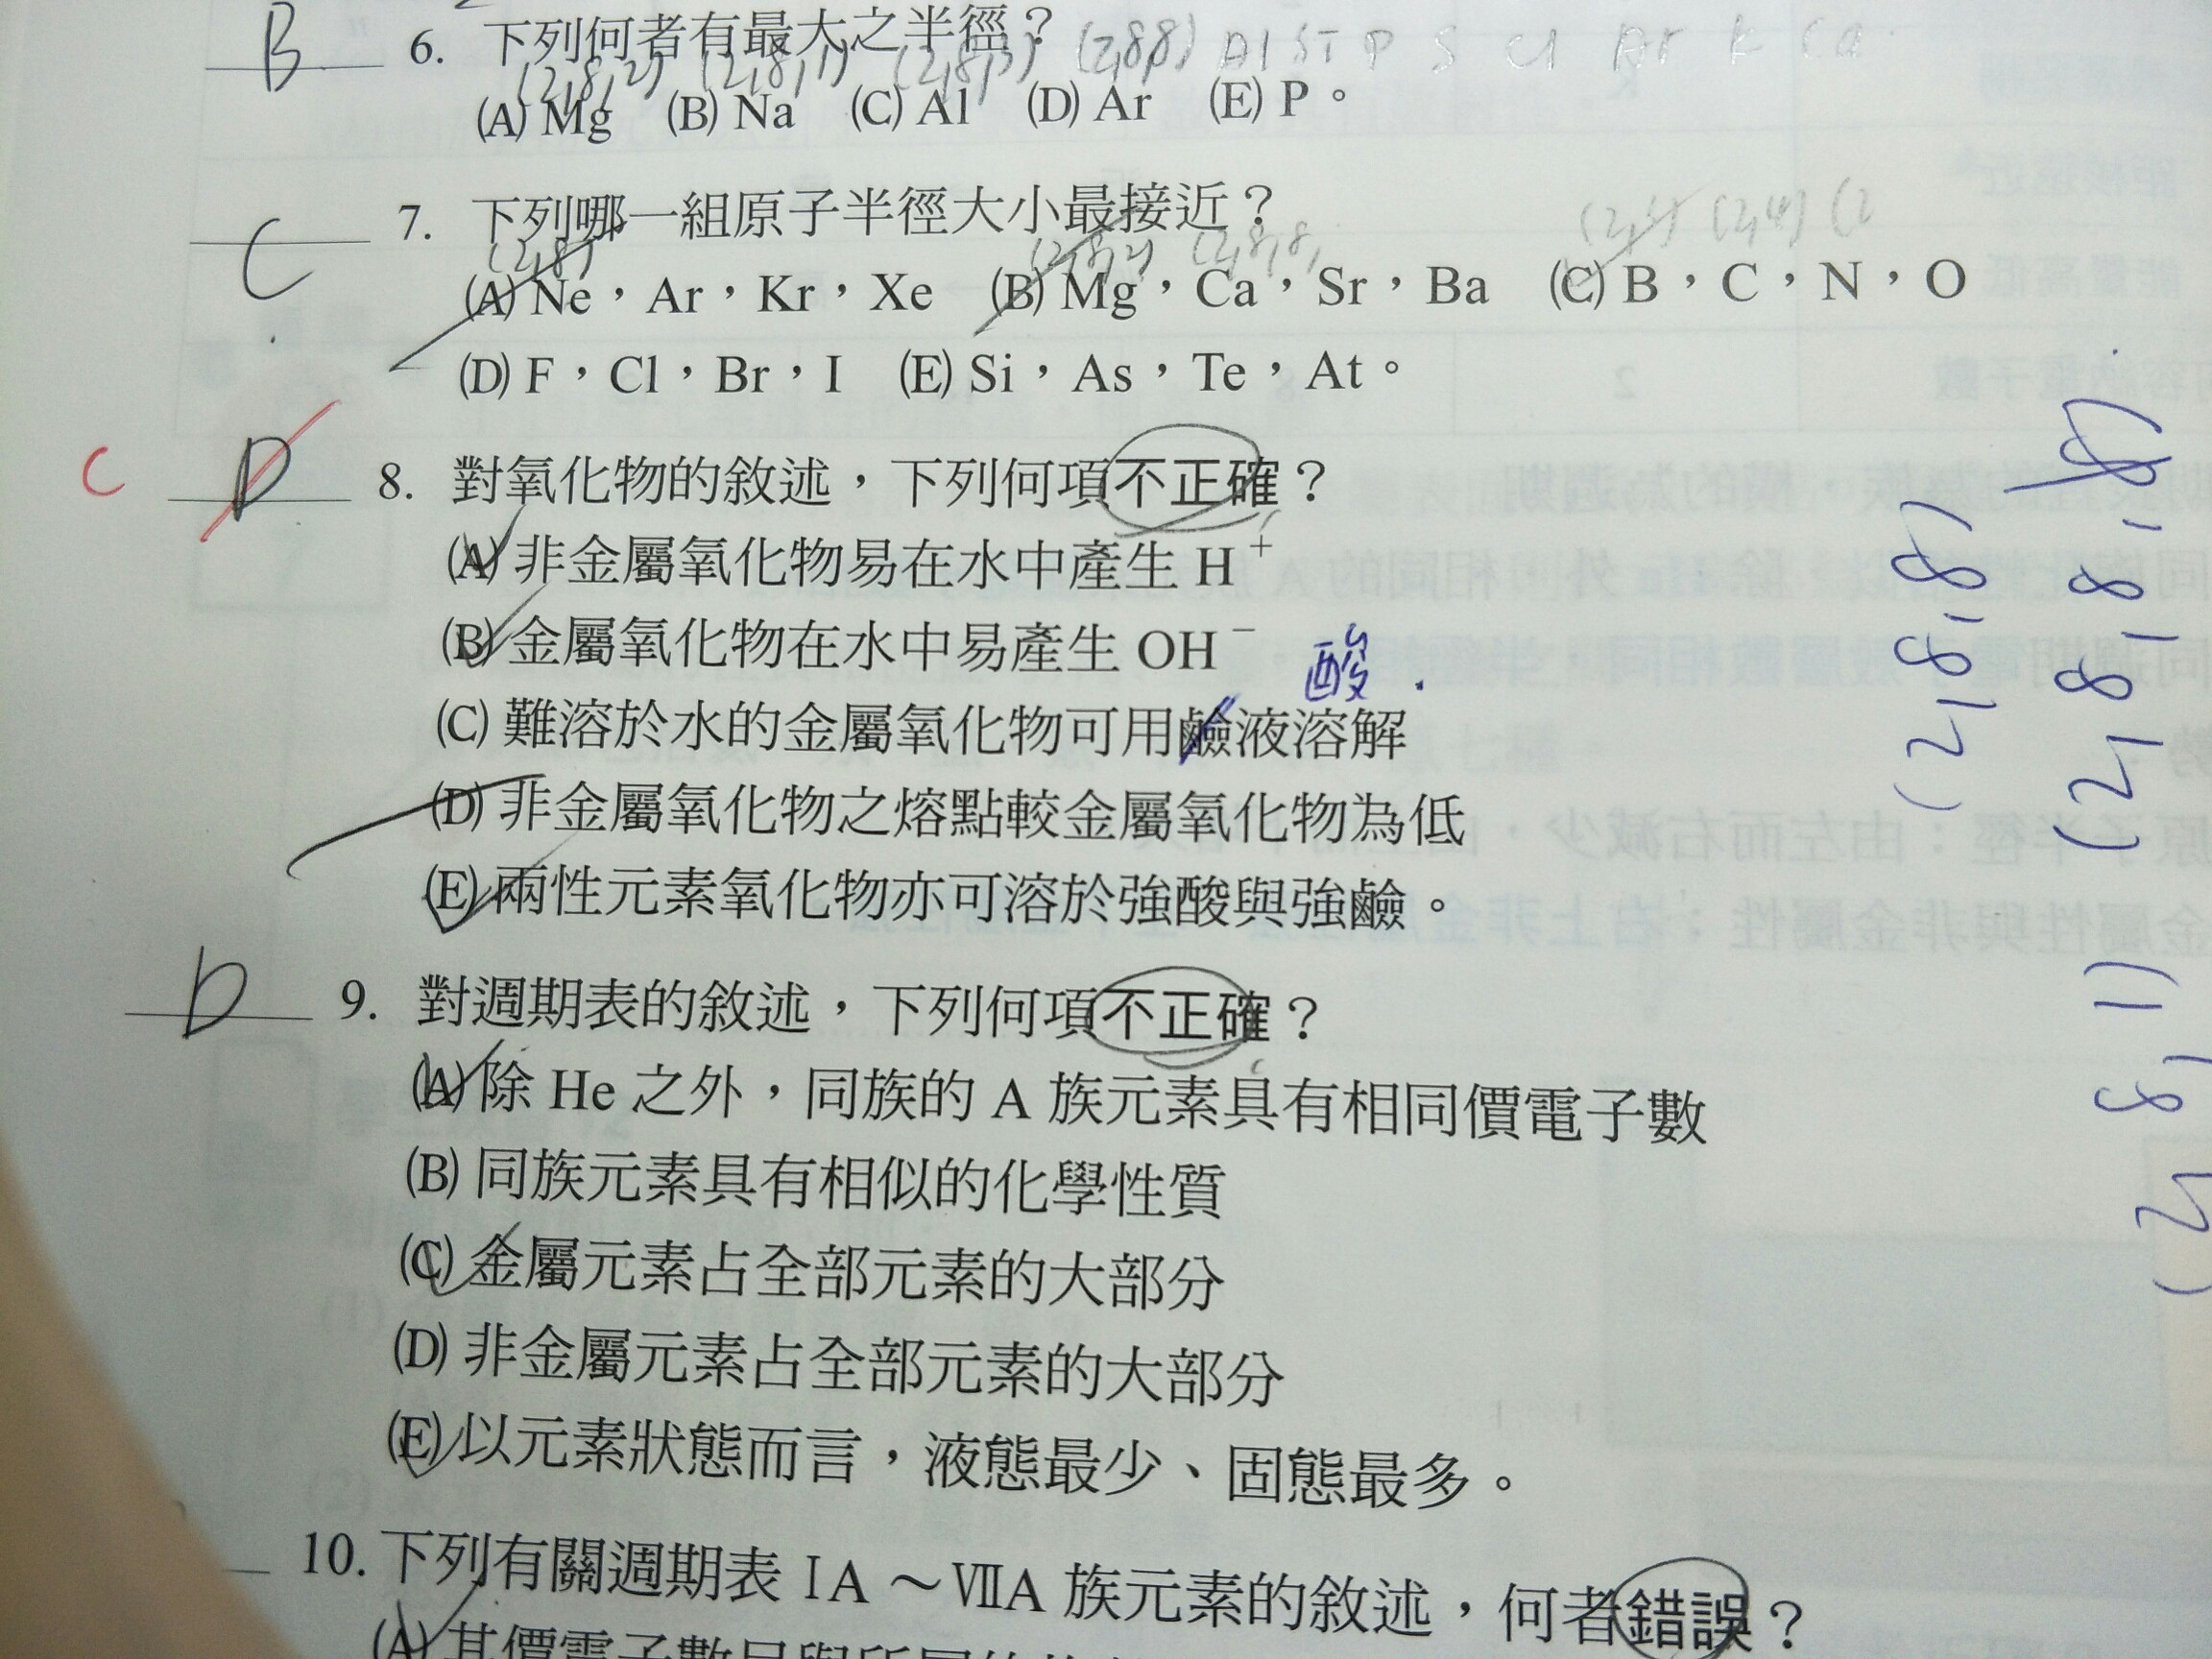 B 6. 下列何者有最大之半徑？ (2,8,8) Al Si P S Cl Ar K Ca
(2,8,2) (2,8,1) (2,8,3)
(A) Mg (B) Na (C) Al (D) Ar (E) P。
C 7. 下列哪一組原子半徑大小最接近？
(2,8) (2,8,2) (2,8,8, (2,3) (2,4) (2
(A) Ne，Ar，Kr，Xe (B) Mg，Ca，Sr，Ba (C) B，C，N，O
(D) F，Cl，Br，I (E) Si，As，Te，At。
C D 8. 對氧化物的敘述，下列何項不正確？
(A) 非金屬氧化物易在水中產生 H⁺
(B) 金屬氧化物在水中易產生 OH⁻
酸
(C) 難溶於水的金屬氧化物可用鹼液溶解
(D) 非金屬氧化物之熔點較金屬氧化物為低
(E) 兩性元素氧化物亦可溶於強酸與強鹼。
D 9. 對週期表的敘述，下列何項不正確？
(A) 除 He 之外，同族的 A 族元素具有相同價電子數
(B) 同族元素具有相似的化學性質
(C) 金屬元素占全部元素的大部分
(D) 非金屬元素占全部元素的大部分
(E) 以元素狀態而言，液態最少、固態最多。
10. 下列有關週期表 ⅠA～ⅦA 族元素的敘述，何者錯誤？
(A) 其價電子數目與所屬的
(2,8,8)
(2,8,8,